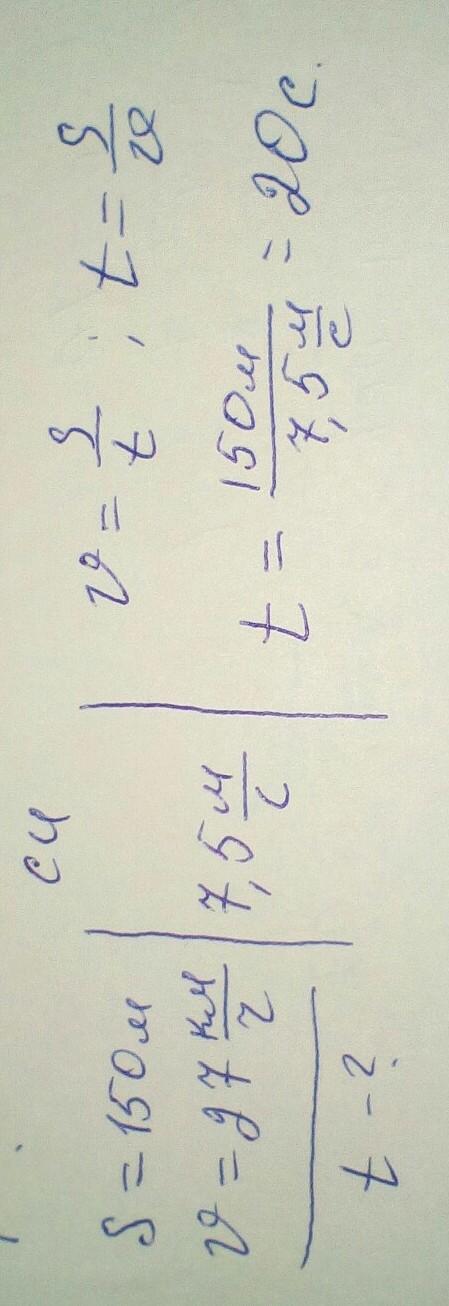 СИ
S = 150 м
v = 27 км/ч
7,5 м/с
t - ?
v = S/t ; t = S/v
t = 150 м / 7,5 м/с = 20 с.